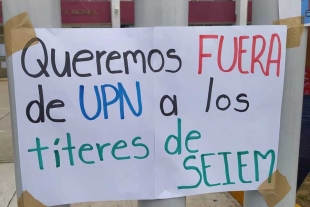 Queremos FUERA
de UPN a los
títeres de
SEIEM